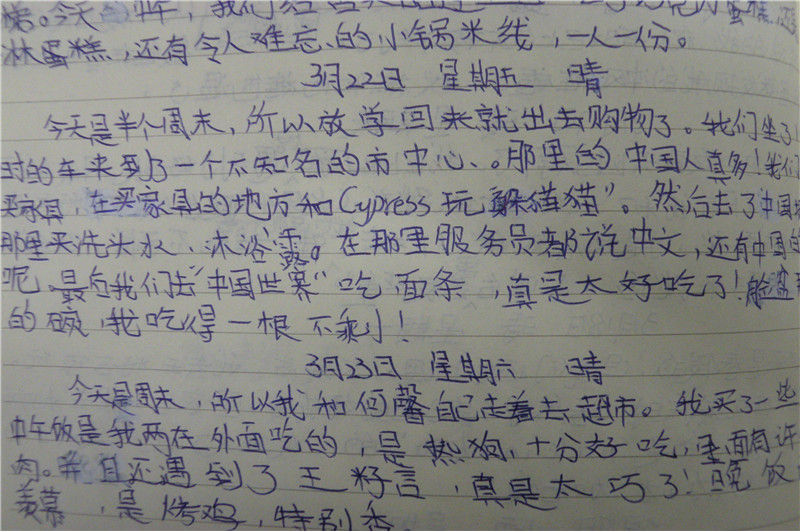 今天
淋蛋糕，还有令人难忘的小锅米线，一人一份。
3月22日 星期五 晴
今天是半个周末，所以放学回来就出去购物了。我们坐了
时的车来到了一个不知名的市中心。那里的中国人真多！我们
买家具，在买家具的地方和Cypress玩“躲猫猫”。然后去了中国
那里买洗头水，沐浴露。在那里服务员都说中文，还有中国的
呢。最后我们去“中国世界”吃面条，真是太好吃了！脸盆
的碗，我吃得一根不剩！
3月23日 星期六 晴
今天是周末，所以我和何馨自己走着去超市。我买了一些
中午饭是我两在外面吃的，是热狗，十分好吃，里面有许
肉。并且还遇到了王籽言，真是太巧了！晚饭
羡慕，是烤鸡，特别香